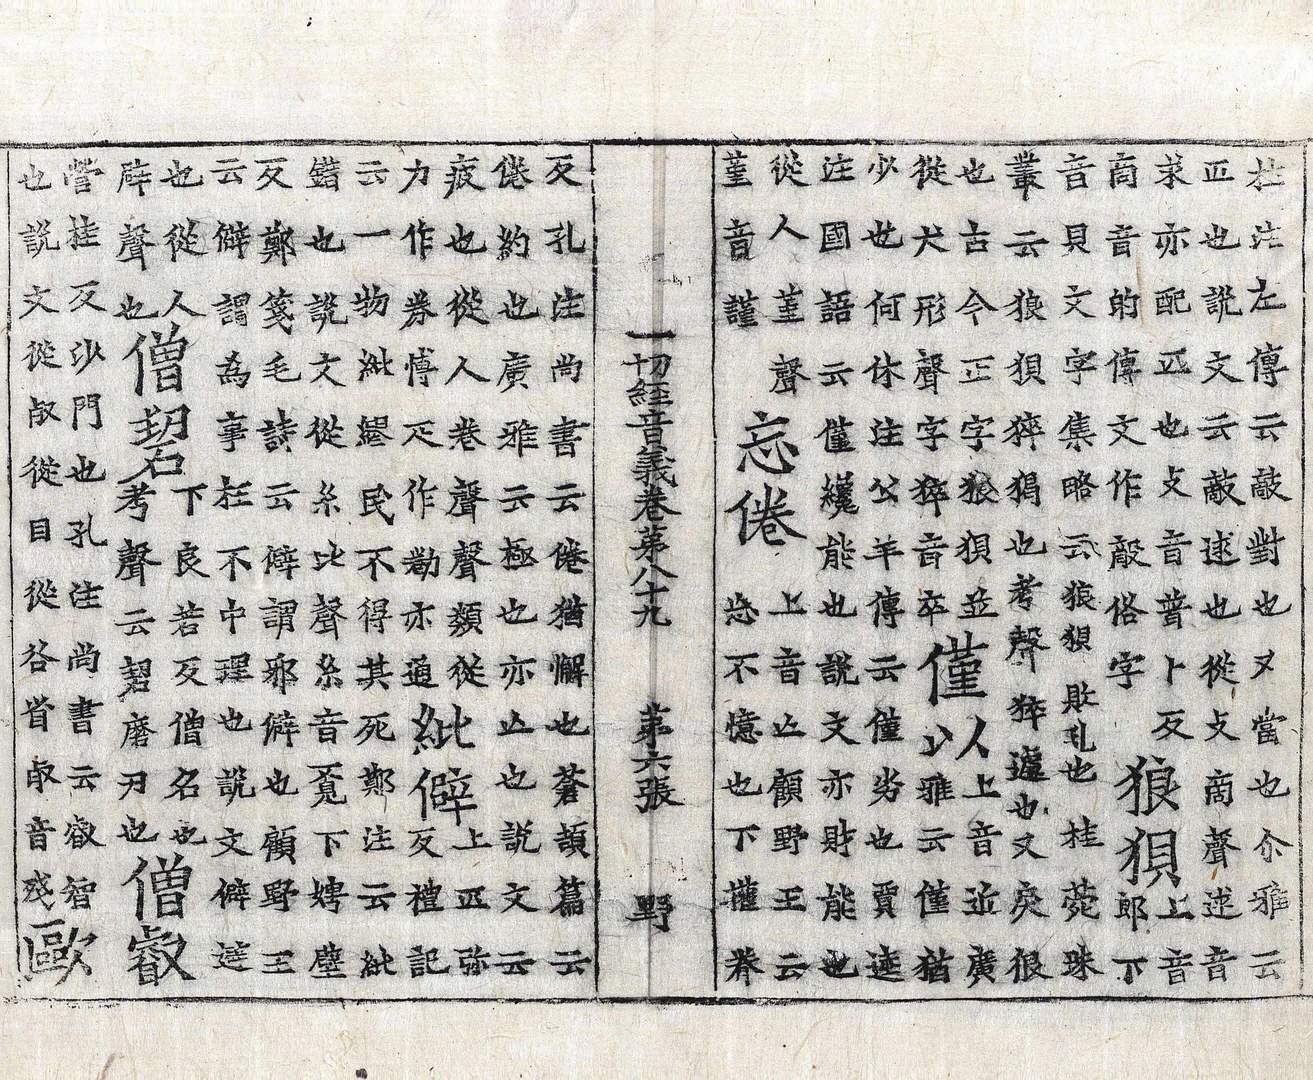 拄注左傳云敵對也又當也尒雅云
匹也說文云敵逑也從攴啇聲逑音
求亦配匹也攴音普卜反
啇音的傳文作敵俗字
狼狽
上音
郎下
音貝文字集略云狼狽敗乱也桂菀珠
叢云狼狽猝獦也考聲猝遽也又戾很
也古今正字狼狽並
從犬形聲字猝音卒
僅以
上音近廣
雅云僅猶
少也何休注公羊傳云僅劣也賈逵
注國語云僅纔能也說文亦財能也
從人堇聲
堇音謹
忘倦
上音亡顧野王云
忘不憶也下權眷
一切經音義卷第八十九 第六張 野
反孔注尚書云倦猶懈也蒼頡篇云
倦約也廣雅云極也亦亡也說文云
疲也從人卷聲聲類從
力作券愽疋作勌亦通
紕僻
上匹弥
反禮記
云一物紕繆民不得其死鄭注云紕
錯也說文從糸比聲糸音覔下娉壁
反鄭箋毛詩云僻謂邪僻也顧野王
云僻謂為事枉不中理也說文僻違
也從人
辟聲也
僧䂮
下良若反僧名也
考聲云䂮磨刃也
僧叡
營桂反沙門也孔注尚書云叡智
也說文從𣦼從目從谷省𣦼音殘
歐